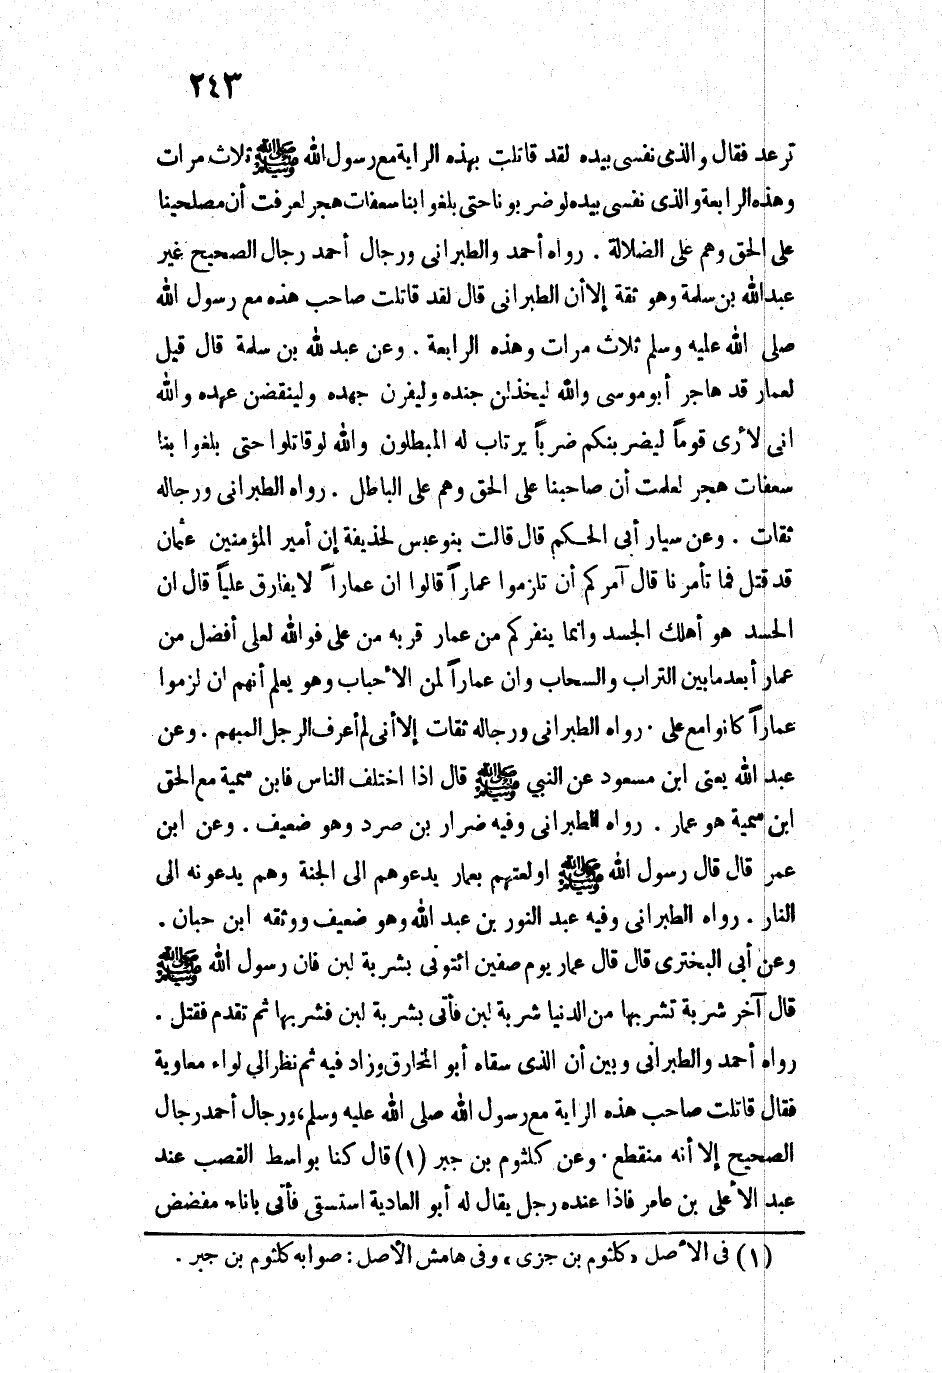 ٢٤٣
ترعد فقال والذى نفسى بيده لقد قاتلت بهذه الراية مع رسول الله ﷺ ثلاث مرات
وهذه الرابعة والذى نفسى بيده لو ضربونا حتى بلغوا بنا سعفات هجر لعرفت أن مصلحينا
على الحق وهم على الضلالة . رواه أحمد والطبرانى ورجال أحمد رجال الصحيح غير
عبدالله بن سلمة وهو ثقة إلا أن الطبرانى قال لقد قاتلت صاحب هذه مع رسول الله
صلى الله عليه وسلم ثلاث مرات وهذه الرابعة . وعن عبد لله بن سلمة قال قيل
لعمار قد هاجر أبو موسى والله ليخذلن جنده وليفرن جهده ولينقضن عهده والله
انى لأرى قوماً ليضربنكم ضرباً يرتاب له المبطلون والله لو قاتلوا حتى بلغوا بنا
سعفات هجر لعلمت أن صاحبنا على الحق وهم على الباطل . رواه الطبرانى ورجاله
ثقات . وعن سيار أبى الحكم قال قالت بنو عبس لحذيفة إن أمير المؤمنين عثمان
قد قتل فما تأمرنا قال آمركم أن تلزموا عماراً قالوا ان عماراً لا يفارق علياً قال ان
الحسد هو أهلك الجسد وانما ينفركم من عمار قربه من على فوالله لعلى أفضل من
عمار أبعد ما بين التراب والسحاب وان عماراً لمن الأحباب وهو يعلم أنهم ان لزموا
عماراً كانوا مع على . رواه الطبرانى ورجاله ثقات إلا أنى لم أعرف الرجل المبهم . وعن
عبد الله يعنى ابن مسعود عن النبي ﷺ قال اذا اختلف الناس فابن سمية مع الحق
ابن سمية هو عمار . رواه الطبرانى وفيه ضرار بن صرد وهو ضعيف . وعن ابن
عمر قال قال رسول الله ﷺ اولعتهم بعمار يدعوهم الى الجنة وهم يدعونه الى
النار . رواه الطبرانى وفيه عبد النور بن عبد الله وهو ضعيف ووثقه ابن حبان .
وعن أبى البخترى قال قال عمار يوم صفين ائتونى بشربة لبن فان رسول الله ﷺ
قال آخر شربة تشربها من الدنيا شربة لبن فأتى بشربة لبن فشربها ثم تقدم فقتل .
رواه أحمد والطبرانى وبين أن الذى سقاه أبو المخارق وزاد فيه ثم نظر الي لواء معاوية
فقال قاتلت صاحب هذه الراية مع رسول الله صلى الله عليه وسلم، ورجال أحمد رجال
الصحيح إلا أنه منقطع . وعن كلثوم بن جبر (١) قال كنا بواسط القصب عند
عبد الأعلى بن عامر فاذا عنده رجل يقال له أبو العادية استسقى فأتى باناء مفضض
(١) فى الأصل «كلثوم بن جزى» وفى هامش الأصل: صوابه كلثوم بن جبر .